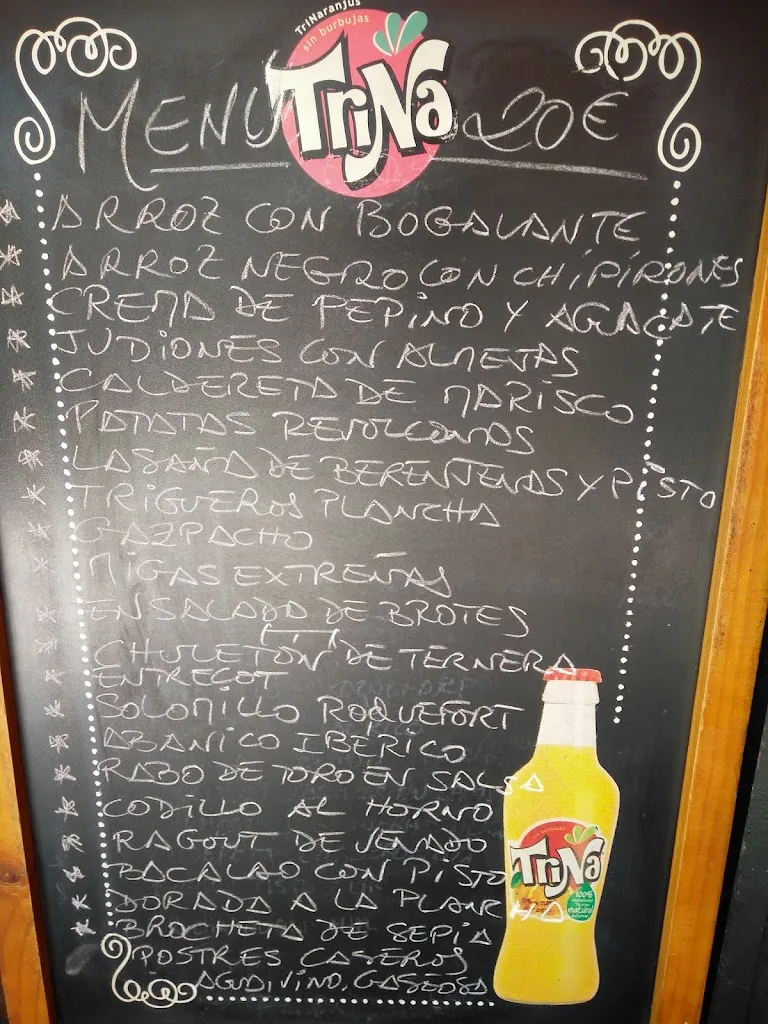 TriNaranjus
sin burbujas
TriNa
MENU 20€
* ARROZ CON BOGAVANTE
* ARROZ NEGRO CON CHIPIRONES
* CREMA DE PEPINO Y AGUACATE
* JUDIONES CON ALMEJAS
* CALDERETA DE MARISCO
* PATATAS REVOLCONAS
* LASAÑA DE BERENJENAS Y PISTO
* TRIGUEROS PLANCHA
* GAZPACHO
* MIGAS EXTREÑAS
* ENSALADA DE BROTES
* CHULETÓN DE TERNERA
* ENTRECOT
* SOLOMILLO ROQUEFORT
* ABANICO IBERICO
* RABO DE TORO EN SALSA
* CODILLO AL HORNO
* RAGOUT DE VENADO
* BACALAO CON PISTO
* DORADA A LA PLANCHA
* BROCHETA DE SEPIA
POSTRES CASEROS
AGUA, VINO, GASEOSA
sin burbujas
TriNa
100%
natural